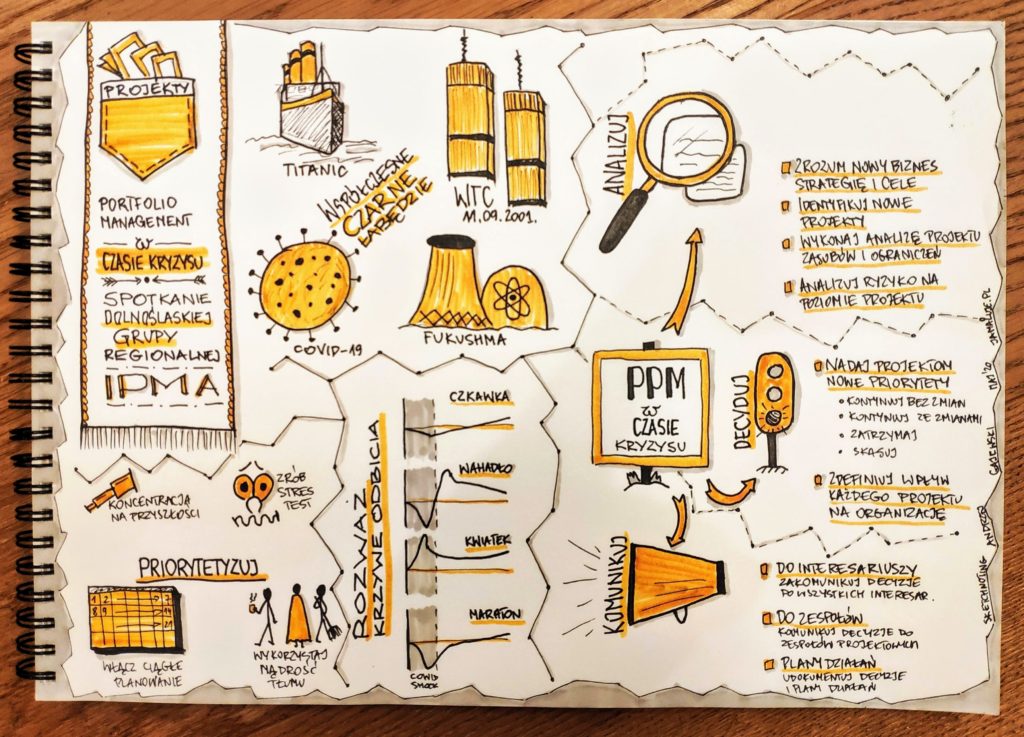 PROJEKTY
PORTFOLIO
MANAGEMENT
W
CZASIE KRYZYSU
SPOTKANIE
DOLNOŚLĄSKIEJ
GRUPY
REGIONALNEJ
IPMA
TITANIC
WTC
11.09.2001.
WSPÓŁCZESNE
CZARNE
ŁABĘDZIE
COVID-19
FUKUSHMA
KONCENTRACJA
NA PRZYSZŁOŚCI
ZRÓB
STRES
TEST
PRIORYTETYZUJ
1 2
8 9
WŁĄCZ CIĄGŁE
PLANOWANIE
WYKORZYSTAJ
MĄDROŚĆ
TŁUMU
ROZWAŻ
KRZYWE ODBICIA
CZKAWKA
WAHADŁO
KWIATEK
MARATON
COVID
SHOCK
ANALIZUJ
ZROZUM NOWY BIZNES
STRATEGIĘ I CELE
IDENTYFIKUJ NOWE
PROJEKTY
WYKONAJ ANALIZĘ PROJEKTU
ZASOBÓW I OGRANICZEŃ
ANALIZUJ RYZYKO NA
POZIOMIE PROJEKTU
PPM
W
CZASIE
KRYZYSU
DECYDUJ
NADAJ PROJEKTOM
NOWE PRIORYTETY
• KONTYNUUJ BEZ ZMIAN
• KONTYNUUJ ZE ZMIANAMI
• ZATRZYMAJ
• SKASUJ
ZDEFINIUJ WPŁYW
KAŻDEGO PROJEKTU
NA ORGANIZACJĘ
KOMUNIKUJ
DO INTERESARIUSZY
ZAKOMUNIKUJ DECYZJE
PO WSZYSTKICH INTERESAR.
DO ZESPOŁÓW
KOMUNIKUJ DECYZJE DO
ZESPOŁÓW PROJEKTOWYCH
PLANY DZIAŁAŃ
UDOKUMENTUJ DECYZJE
I PLANY DZIAŁAŃ
SKETCHNOTING ANDRZEJ GAJEWSKI MAJ '20